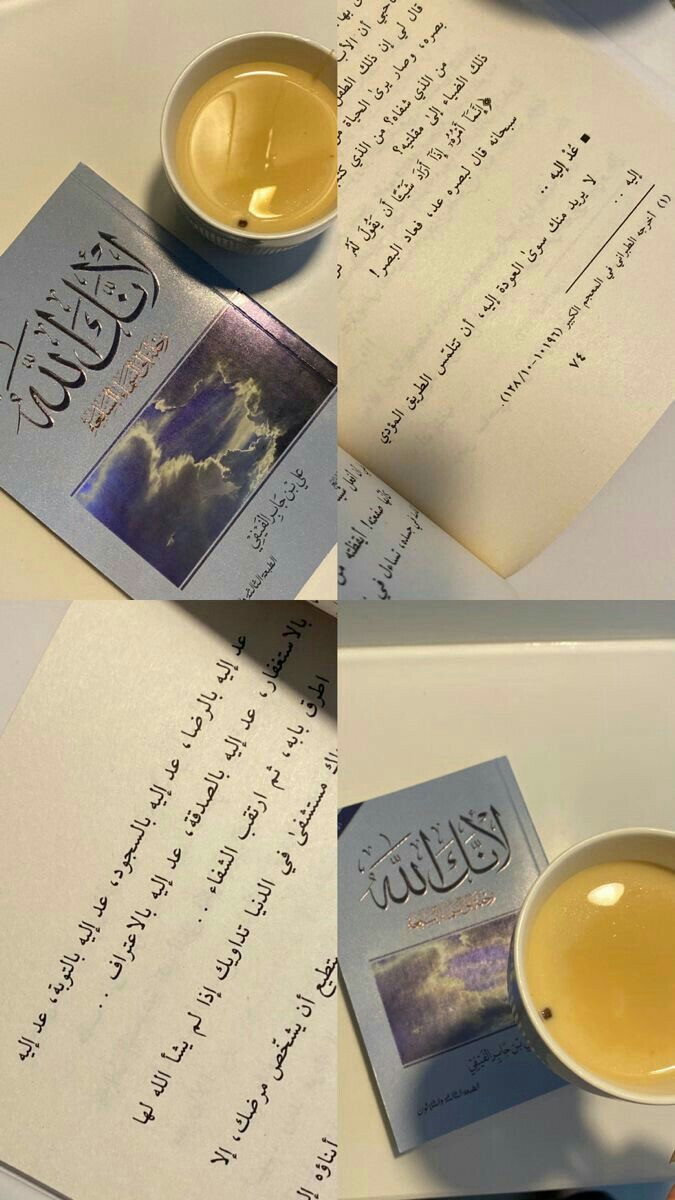 لأنك الله
رحلة إلى السماء السابعة
علي بن جابر الفيفي
قال لي إن ذلك الطفل
بصره، وصار يرى الحياة
من الذي شفاه؟ من الذي
ذلك الضياء إلى مقلتيه؟
﴿إِنَّمَا أَمْرُهُ إِذَا أَرَادَ شَيْئًا أَن يَقُولَ لَهُ
سبحانه قال لبصره عد، فعاد البصر!
■ عُدْ إليه ..
لا يريد منك سوى العودة إليه، أن تتلمس الطريق المؤدي
إليه ..
(١) أخرجه الطبراني في المعجم الكبير (١٠١٩٦-١٠/١٢٨).
٧٤
عد إليه بالرضا، عد إليه بالسجود، عد إليه بالتوبة، عد إليه
بالاستغفار، عد إليه بالصدقة، عد إليه بالاعتراف ..
اطرق بابه، ثم ارتقب الشفاء ..
مستشفى في الدنيا تداويك إذا لم يشأ الله لها
أن يشخّص مرضك، إلا
لأنك الله
رحلة إلى السماء السابعة
بن جابر الفيفي
الطبعة الثالثة والثلاثون